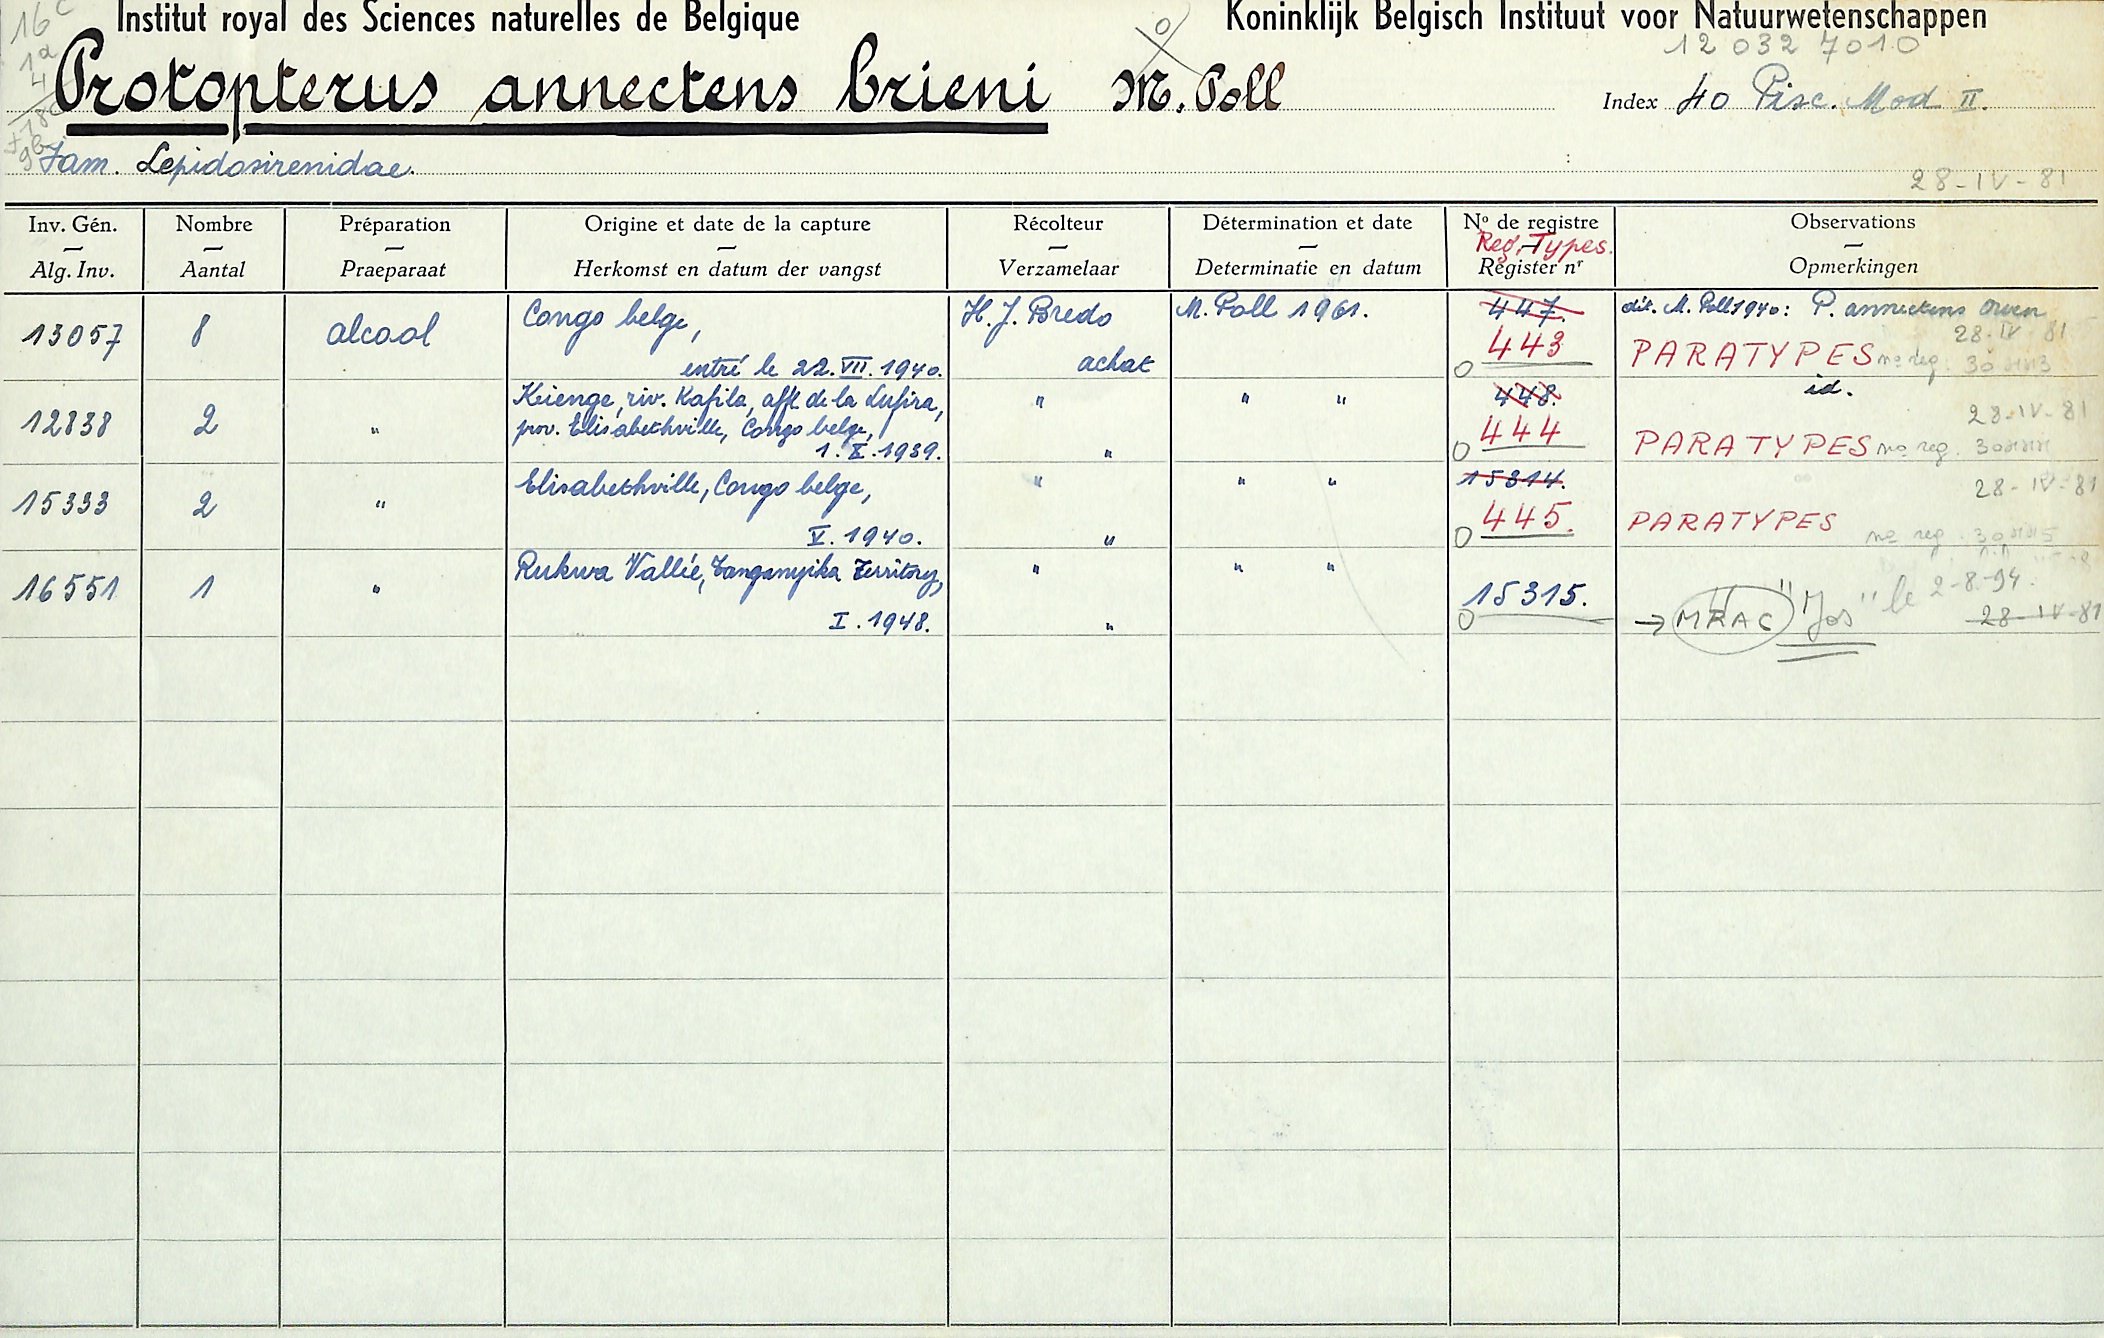 16c Institut royal des Sciences naturelles de Belgique Koninklijk Belgisch Instituut voor Natuurwetenschappen
12 032 7010
Protopterus annectens brieni M. Poll Index 40 Pisc. Mod II.
Fam. Lepidosirenidae.
28-IV-81
Inv. Gén. Nombre Préparation Origine et date de la capture Récolteur Détermination et date No de registre Observations
Reg. Types.
Alg. Inv. Aantal Praeparaat Herkomst en datum der vangst Verzamelaar Determinatie en datum Register nr Opmerkingen
13057 8 alcool Congo belge, H. J. Bredo M. Poll 1961. 447. dét. M. Poll 1940: P. annectens Owen
28-IV-81
entré le 22.VII.1940. achat 443 PARATYPES no reg.
Kienge, riv. Kafila, affl. de la Lufira, " " " 448. id.
28-IV-81
12838 2 " prov. Elisabethville, Congo belge, 444 PARATYPES no reg.
1.X.1939. "
Elisabethville, Congo belge, " " " 15314. 28-IV-81
15333 2 " 445. PARATYPES
V.1940. " no reg.
Rukwa Vallée, Tanganyika Territory, " " "
16551 1 " 15315. → MRAC "Jos" le 2-8-94.
I.1948. " 28-IV-81